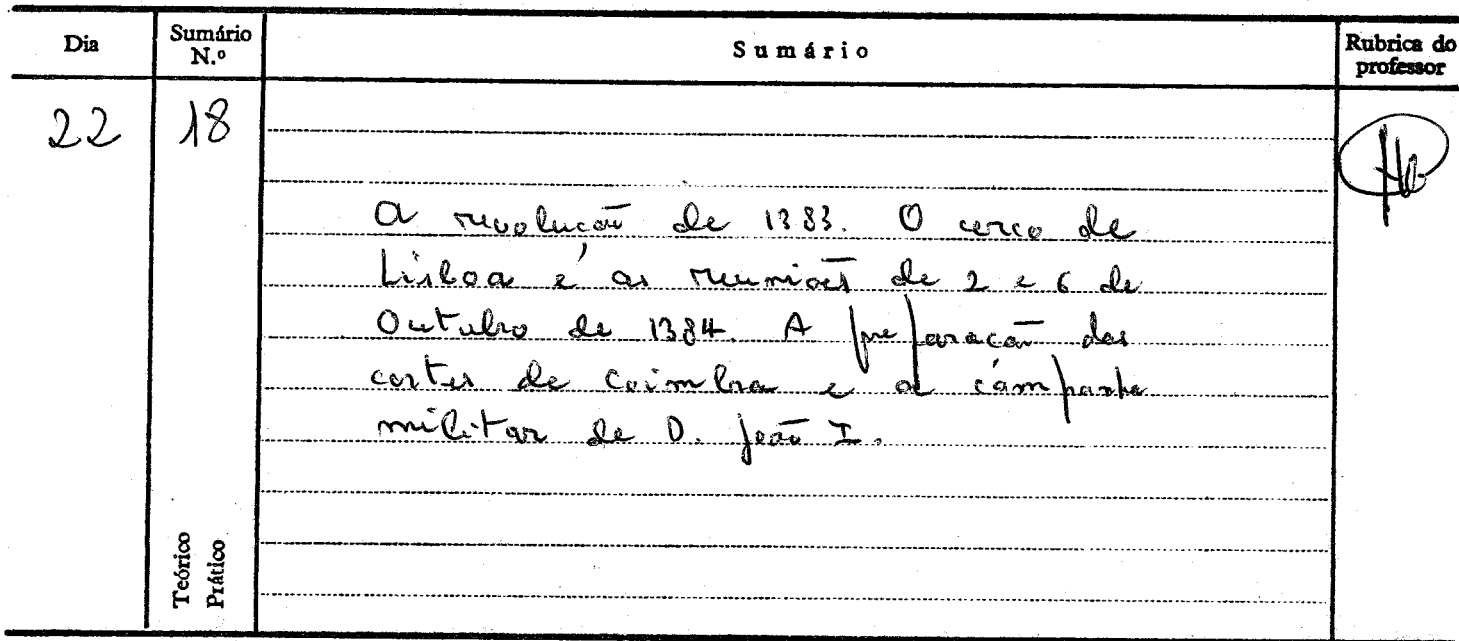 Dia
Sumário N.º
Sumário
Rubrica do professor
22
18
A revolução de 1383. O cerco de
Lisboa e as reuniões de 2 e 6 de
Outubro de 1384. A preparação das
cortes de Coimbra e a campanha
militar de D. João I.
Teórico
Prático